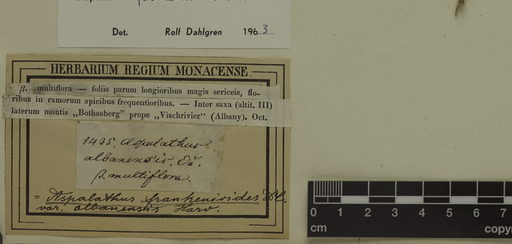 Det. Rolf Dahlgren 1963
HERBARIUM REGIUM MONACENSE.
β. multiflora — foliis parum longioribus magis sericeis, flo-
ribus in ramorum apicibus frequentioribus. — Inter saxa (altit. III)
laterum montis „Bothasberg" prope „Vischrivier" (Albany). Oct.
1435. Aspalathus
albanensis. E.
β. multiflora.
Aspalathus frankenioides DC.
var. albanensis Harv.
0 1 2 3 4 5 6 7
cm
copy